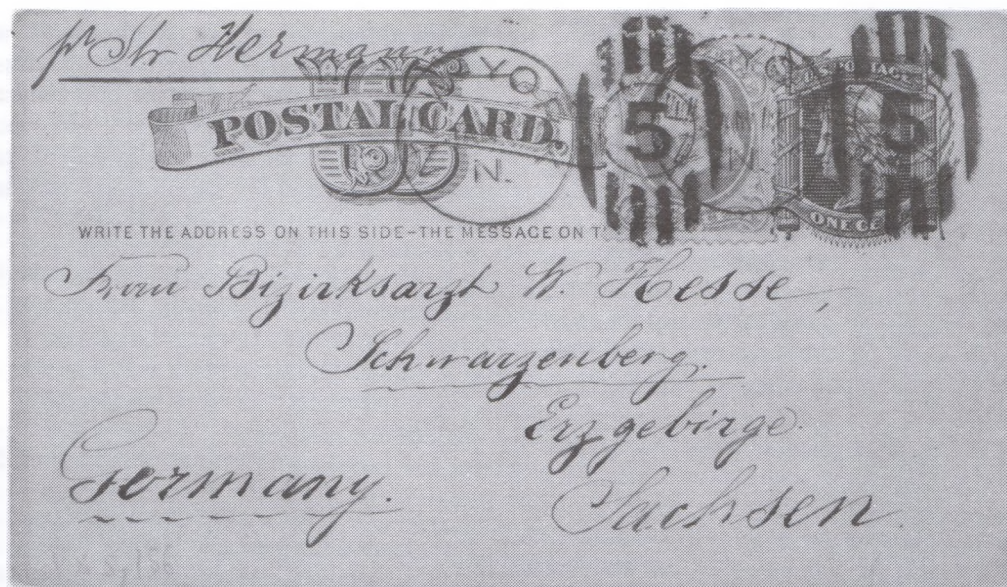 pr Str Hermann
U S
POSTAL CARD.
U.S. POSTAGE
ONE CE
5
5
N.
WRITE THE ADDRESS ON THIS SIDE-THE MESSAGE ON T
Frau Bizirksarzt W. Hesse,
Schwarzenberg.
Erzgebirge.
Germany.
Sachsen.